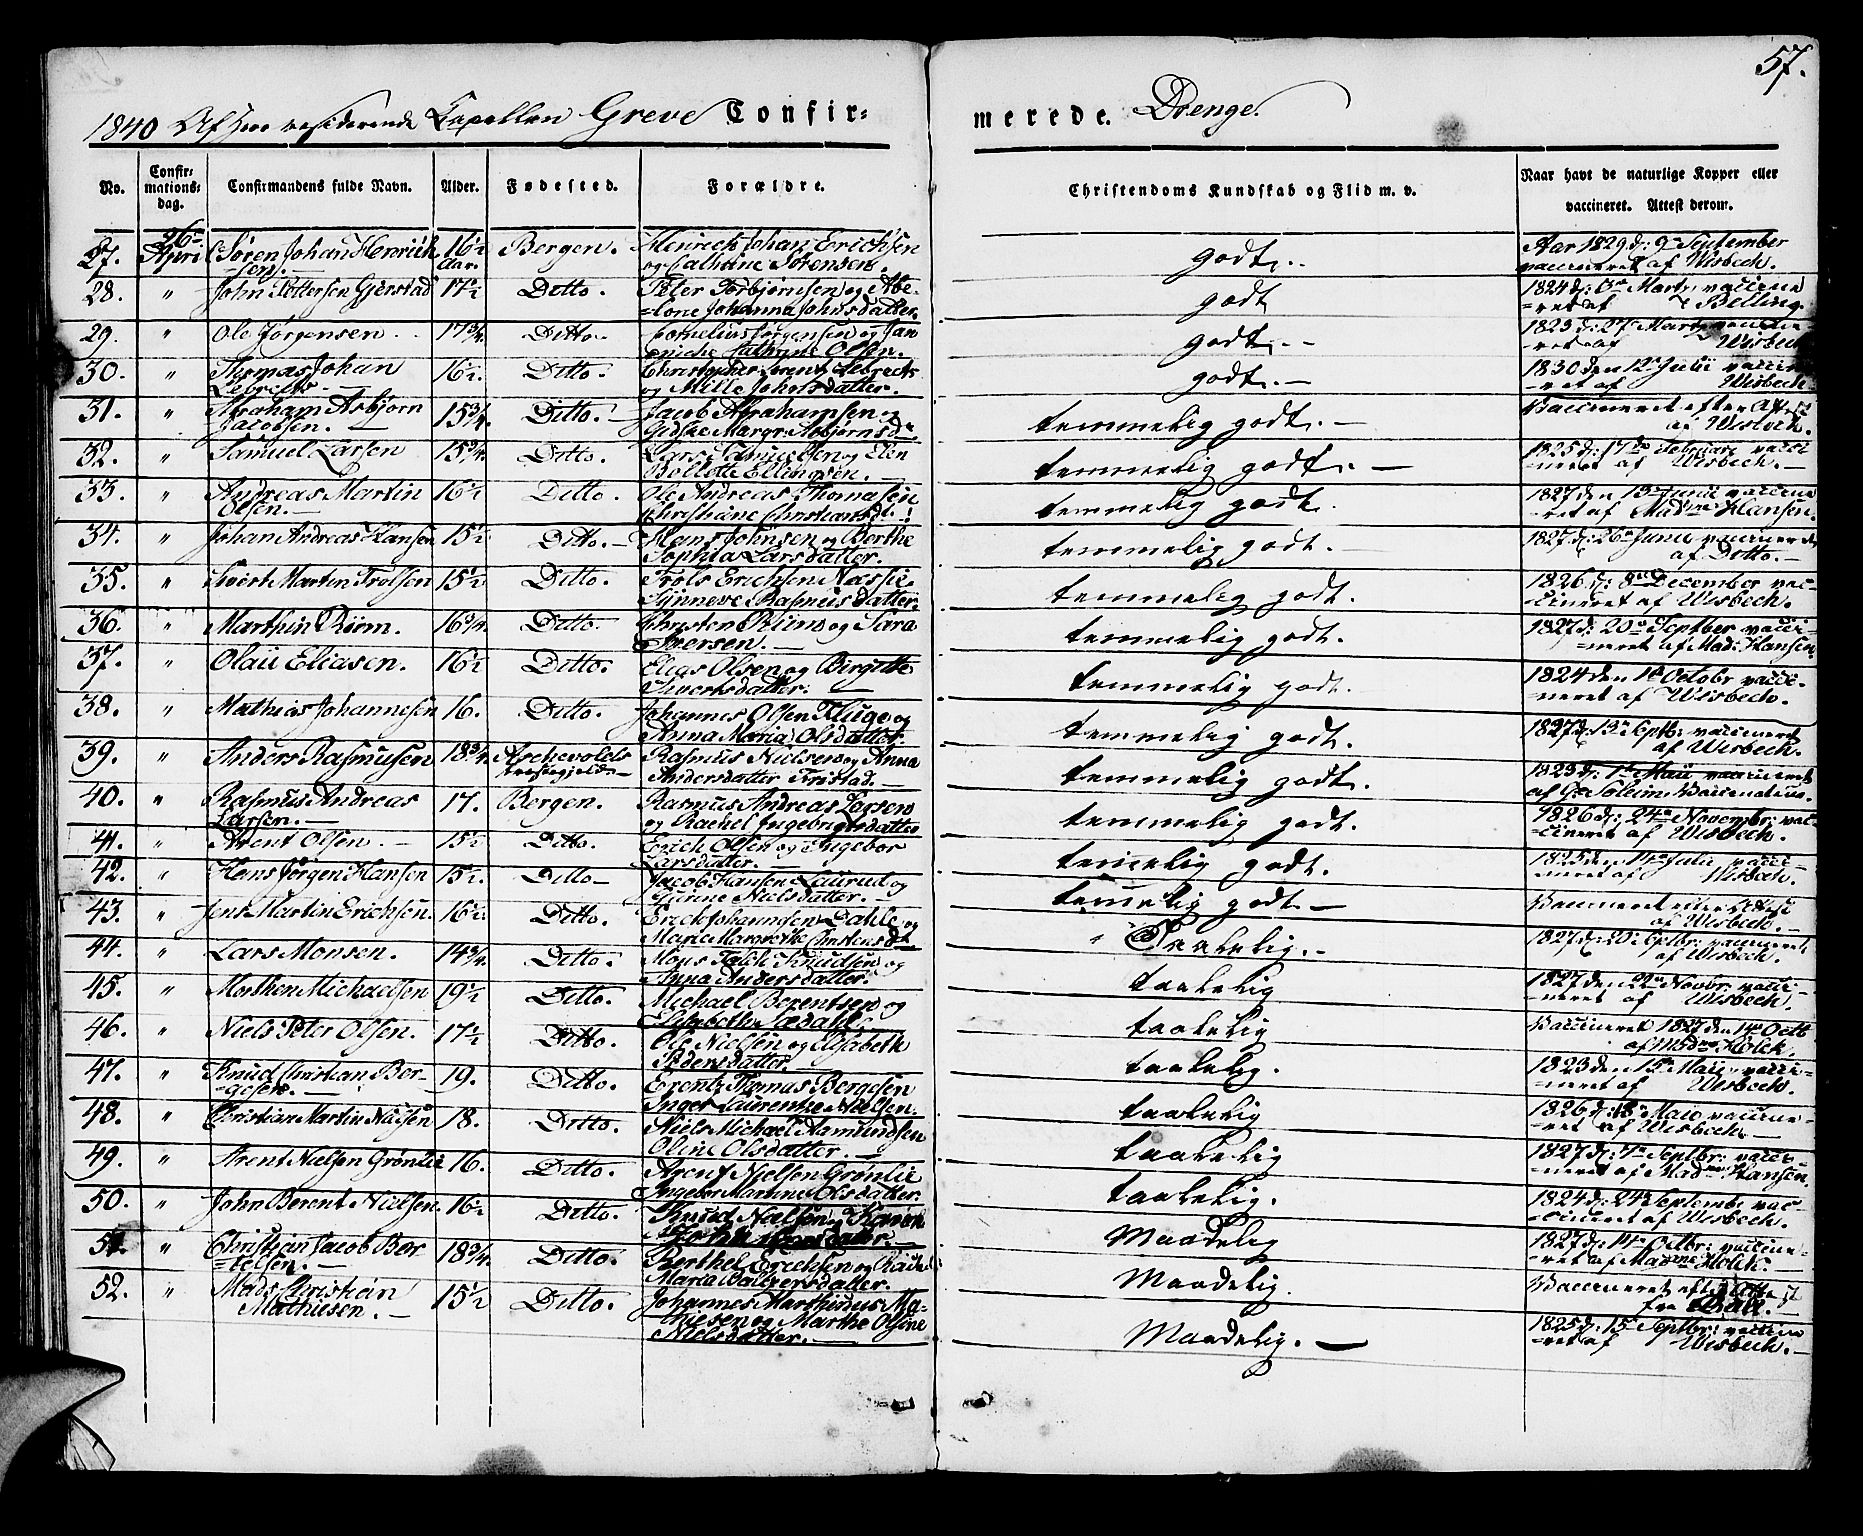 57.
1840 Af Herr residerende Capellan Greve Confir-
merede. Drenge.
No. Confir-mations-dag. Confirmandens fulde Navn. Alder. Fødested. Forældre. Christendoms Kundskab og Flid m. v. Naar havt de naturlige Kopper eller vaccineret. Attest derom.
27. 26 April Søren Johan Henrich-sen. 16½ Aar. Bergen. Henrich Johan Erichsen og Cathrine Sørensen. godt. Aar 1829 d: 9 September vaccineret af Wisbech.
28. " John Pettersen Gjerstad 17½ Ditto. Peter Torbjørnsen og Abe-lone Johanna Johnsdatter. godt 1824 d: Martz vaccine-ret af Belling.
29. " Ole Jørgensen 17¾. Ditto. Cornelius Jørgensen og Jan- Cathrine Olsen. godt. 1823 d: 27 Martz vaccine-ret af Wisbech
30. " Thomas Johan Lebrechts. 16½. Ditto. Christopher Lorentz Lebrechts og Mille Johnsdatter. godt. 1830 den 12 Julii vacci-neret af Wisbech.
31. " Abraham Asbjørn Jacobsen. 15¾. Ditto. Jacob Abrahamsen og Gidske Margr: Asbjørnsd: temmelig godt. Vaccineret efter Attest af Wisbech.
32. " Samuel Larsen 15¾. Ditto. Lars Samuelsen og Elen Bollette Ellingsen. temmelig godt. 1825 d: 17de Februari vacci-neret af Wisbech.
33. " Andreas Martin Olsen. 16½ Ditto. Ole Andreas Thomasen Christiane Christiansd: temmelig godt. 1827 den 13 Junii vaccine-ret af Madme Hansen.
34. " Johan Andreas Hansen 15½ Ditto. Hans Johnsen og Berthe Sophia Larsdatter. temmelig godt. 1827 d: 26 Junii vaccineret af Ditto.
35. " Sivert Martin Trolsen 15½ Ditto. Trols Erichsen Næsse Synneve Rasmusdatter. temmelig godt. 1826 d: 8de December vac-cineret af Wisbech.
36. " Marthin Riim. 16¾. Ditto. Christen Riim og Sara Iversen. temmelig godt. 1827 d: 20 Septber vacci-neret af Mad: Hansen.
37. " Olaii Eliasen. 16½ Ditto. Elias Olsen og Birgitte Sivertsdatter. temmelig godt. 1824 den 1 Octobr vacci-neret af Wisbech.
38. " Mathias Johannesen 16. Ditto. Johannes Olsen Fluge og Anna Maria Olsdatter. temmelig godt. 1827 d: 13 Septb: vaccineret af Wisbech.
39. " Anders Rasmusen 18¾. Præstegjeld Rasmus Nielsen og Anna Andersdatter temmelig godt. 1823 d: 1 Maii vaccineret af
40. " Rasmus Andreas Larsen. 17. Bergen. Rasmus Andreas Larsen og Rachel Ingebrigtsdatter temmelig godt. 1826 d: 24 Novembr: vac-cineret af Wisbech.
41. " Arent Olsen. 15½ Ditto. Erich Olsen og Ingebor Larsdatter. temelig godt. 1825 den 14 Julii vacci-neret af Wisbech.
42. " Hans Jørgen Hansen 15½. Ditto Jacob Hansen Laurud og Nielsdatter. temelig godt. Vaccineret efter Attest af Wisbech.
43. " Jens Martin Erichsen. 16½ Ditto. Erich Johannsen Dahle og Maria Margrethe Christensdt. " Taalelig. 1827 d: 20 Septbr: vaccineret af Wisbech.
44. " Lars Monsen. 14¾. Ditto. Mons Falch Knudsen og Anna Andersdatter. taalelig 1827 den 22 Novbr: vacci-neret af Wisbech.
45. " Morthen Michaelsen 19½ Ditto. Michael Berentsen og Elisabeth Sædahl. taalelig Vaccineret 1827 den 14 Octb af Madme Holck.
46. " Niels Peter Olsen. 17½ Ditto. Ole Nielsen og Elisabeth Pedersdatter. taalelig. 1823 den 15 Maii vacci-neret af Wisbech.
47. " Knud Christian Ber-gesen. 19. Ditto. Erentz Thomas Bergesen Inger Laurentze Nielsen. taalelig 1826 d: 18 Maii vaccine-ret af Wisbech.
48. " Christian Martin Nielsen 18. Ditto. Niels Michael Aamundsen Oline Olsdatter. taalelig 1827 d: 7 Septbr: vacci-neret af Madme Hansen.
49. " Arent Nielsen Grønlie 16. Ditto. Arent Nielsen Grønlie Ingebor Marine Olsdatter. taalelig. 1824 d: 24 Septemb: vac-cineret af Wisbech.
50. " John Berent Nielsen. 16½ Ditto. Knud Nielsen og Karen Maadelig 1827 d: 14 Octbr: vaccine-ret af Madme Holck.
51. " Christian Jacob Ber-telsen. 18¾ Ditto. Berthel Erichsen og Rachel Maria Halversdatter. Maadelig. Vaccineret efter Attest fra
52. " Mads Christian Mathiesen. 15½ Ditto. Johannes Marthinus Ma-thiesen og Marthe Oline Nielsdatter. Maadelig. 1825 d: 15 Septbr: vaccine-ret af Wisbech.